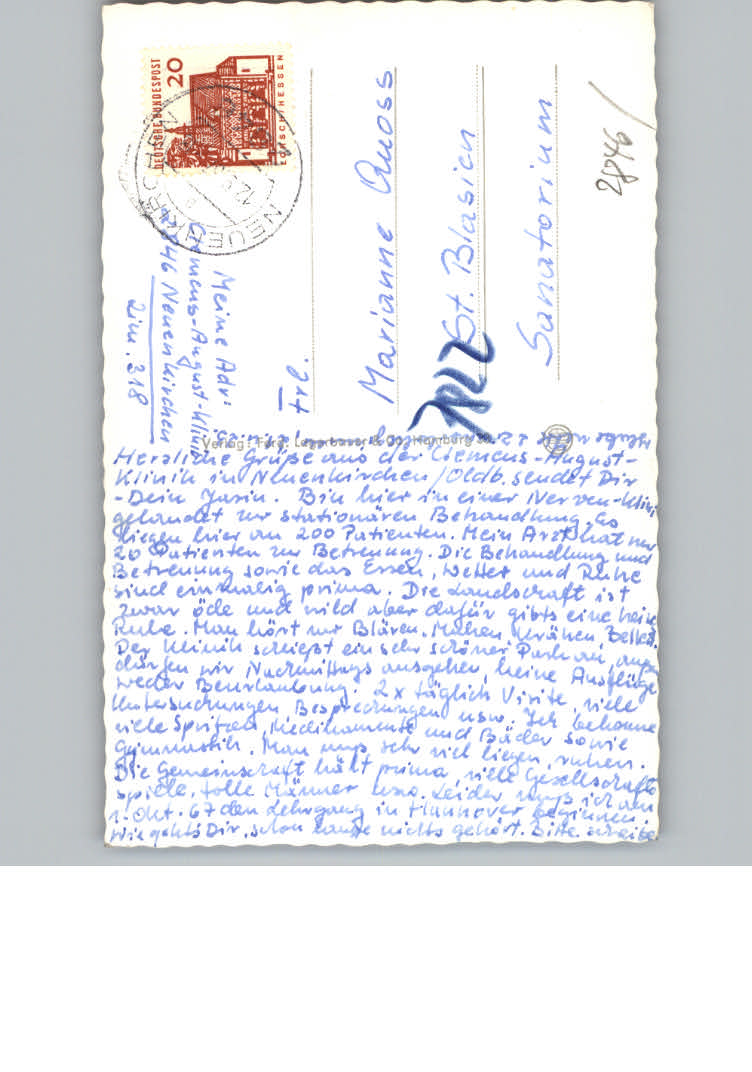 DEUTSCHE BUNDESPOST
20
LORSCH/HESSEN
NEUENKIRCHEN
Meine Adr:
Clemens-August-Klinik
2846 Neuenkirchen
Zim. 318
Frl.
Marianne Quoss
7822 St. Blasien
Sanatorium
2846
Verlag: Ferd. Lagerbauer & Co. Hamburg
Herzliche Grüße aus der Clemens-August-
Klinik in Neuenkirchen/Oldb. sendet Dir
- Dein. Bin hier in einer Nerven-Klini
gelandet zur stationären Behandlung. Es
liegen hier an 200 Patienten. Mein Arzt hat nur
20 Patienten zur Betreuung. Die Behandlung und
Betreuung sowie das Essen, Wetter und Ruhe
sind einmalig prima. Die Landschaft ist
zwar öde und wild aber dafür gibts eine
Ruhe. Man hört nur Blären, Muhen, Krähen, Bellen.
Der Klinik schließt ein sehr schöner Park an,
dürfen wir Nachmittags ausgehen, keine Ausflüge
weder Beurlaubung. 2 x täglich Visite, viele
Untersuchungen Besprechungen usw. Ich bekomme
viele Spritzen, Medikamente und Bäder sowie
Gymnastik. Man muß sehr viel liegen, ruhen.
Die Gemeinschaft hält prima, viele Gesellschafts
spiele, tolle Männer usw. Leider muß ich am
1. Okt. 67 den Lehrgang in Hannover beginnen.
Wie gehts Dir, schon lange nichts gehört. Bitte schreibe